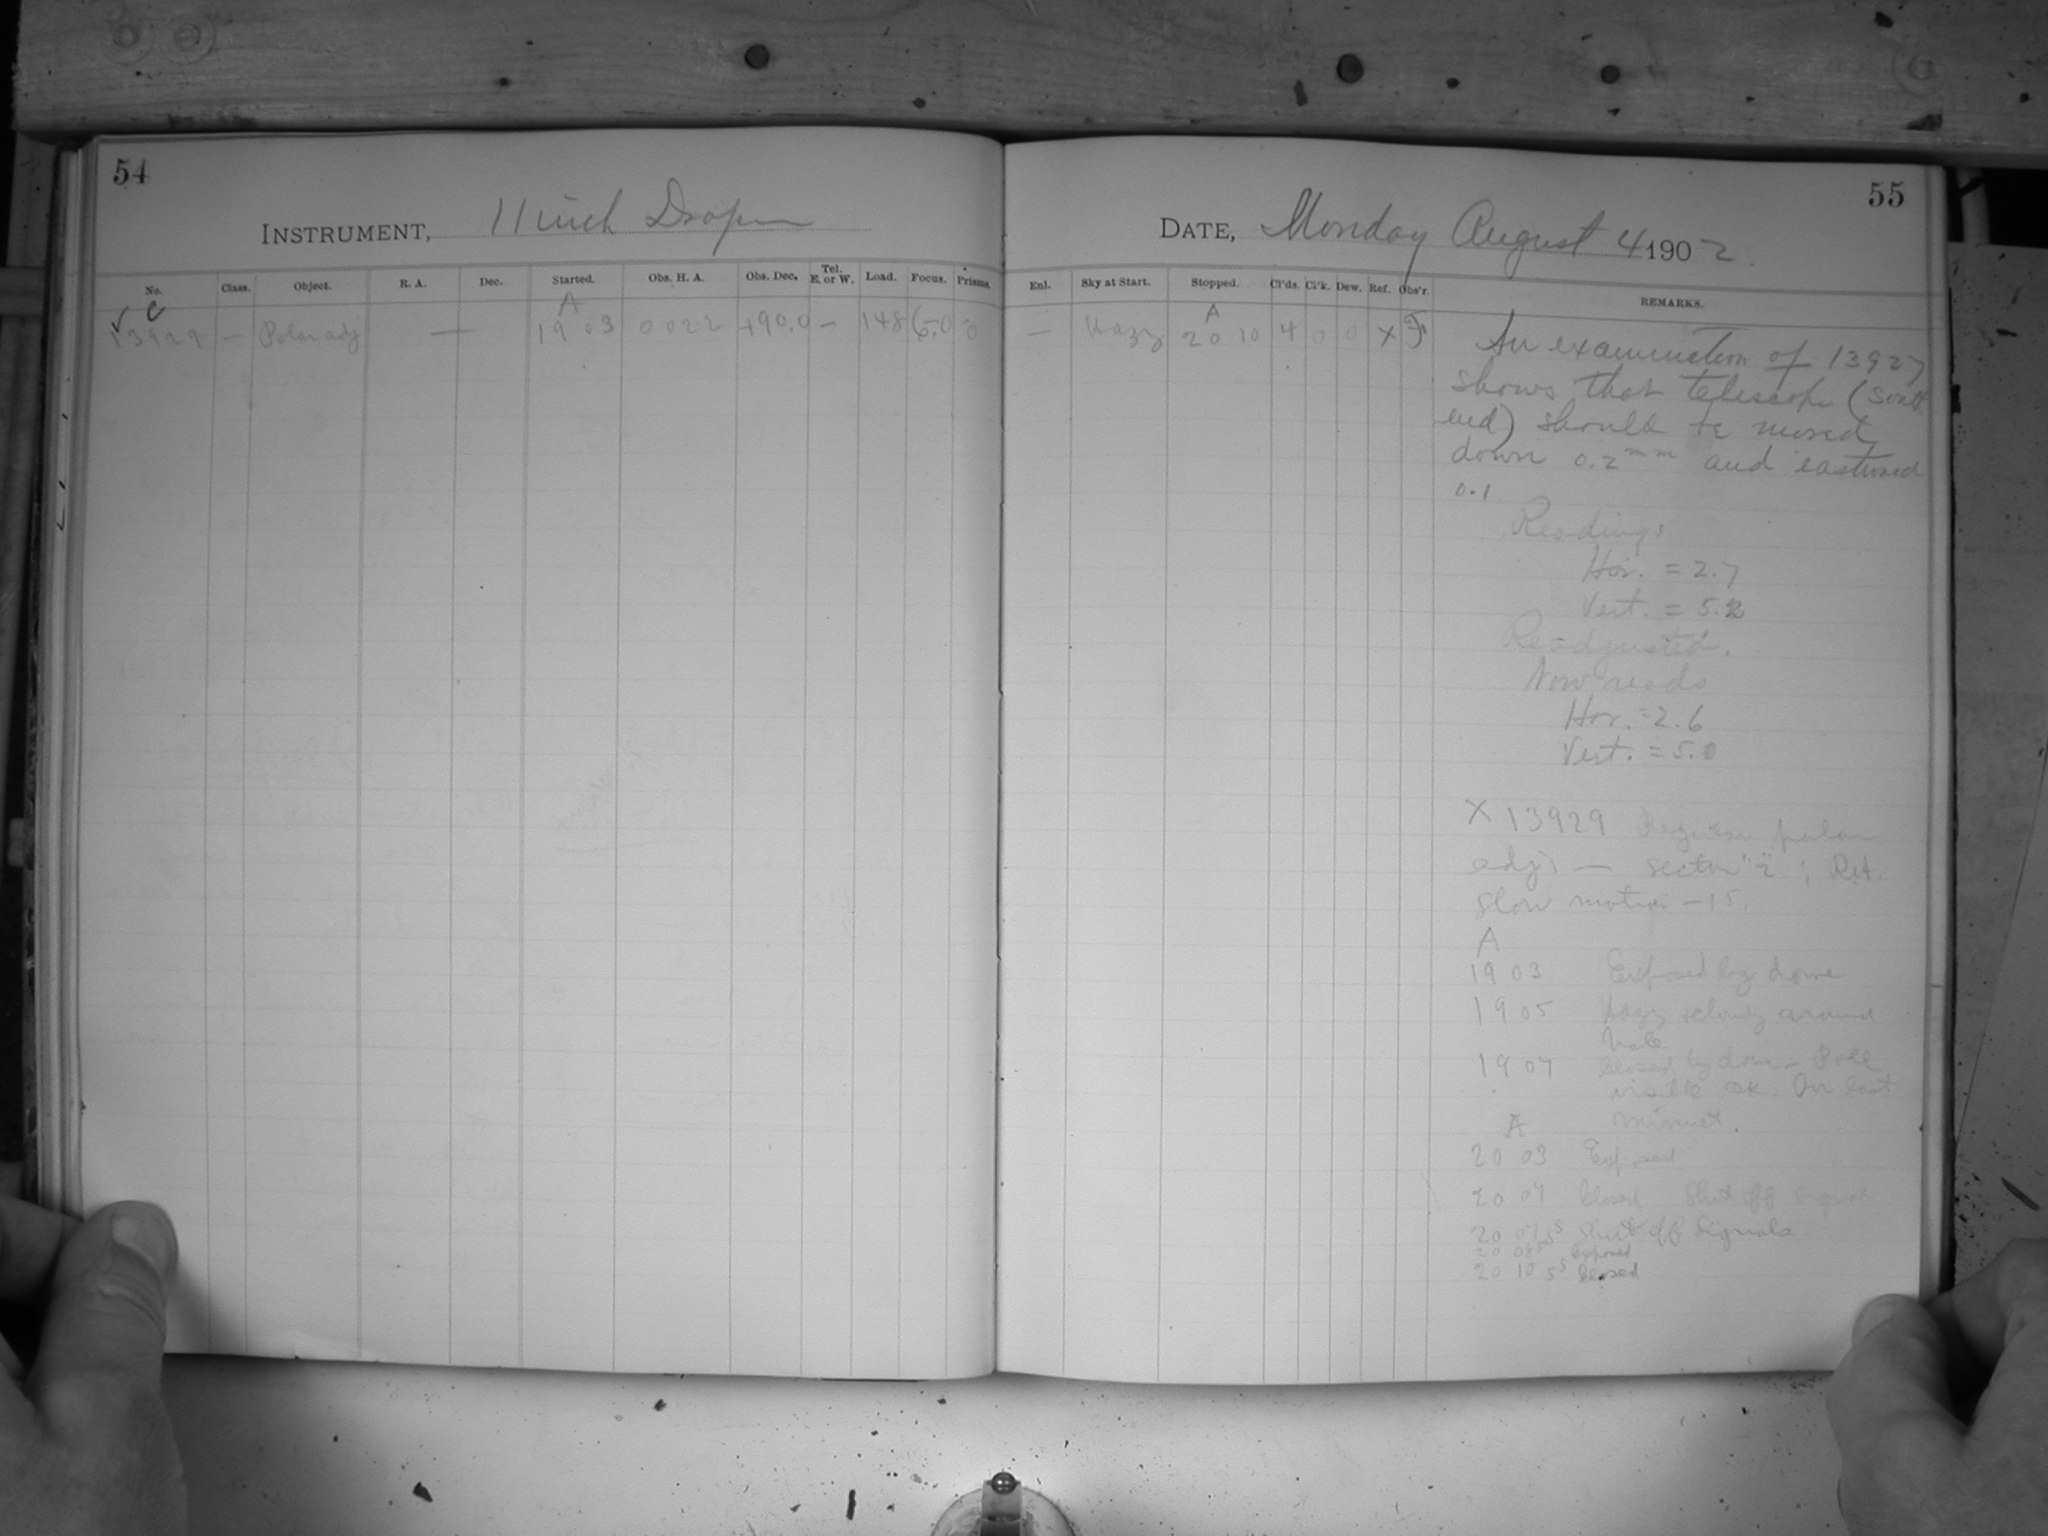 54
INSTRUMENT, 11 inch Draper
No. Class. Object. R. A. Dec. Started. Obs. H. A. Obs. Dec. Tel. E. or W. Load. Focus. Prisms.
A
13929 — Polar adj — 19 03 0 022 +90.0 — 148 6.0 0
55
DATE, Monday August 4 1902
Enl. Sky at Start. Stopped. Cl'ds. Cl'k. Dew. Ref. Obs'r. REMARKS.
A
— Hazy 20 10 4 0 0 X
An examination of 13927
shows that telescope (South
end) should be moved
down 0.2mm and eastward
0.1
Readings
Hor. = 2.7
Vert. = 5.2
Readjusted.
Now reads
Hor. = 2.6
Vert. = 5.0
X 13929 Regular polar
adj — sector "2"; R.A.
slow motion — 15.
A
19 03 Exposed by dome
19 05 Hazy & cloudy around
Pole
19 07 Closed by dome — Pole
visible OK. On last
minute.
A
20 03 Exposed
20 07 Closed Shut off signal
20 07 55 Shut off signals
20 08 Exposed
20 10 55 Closed